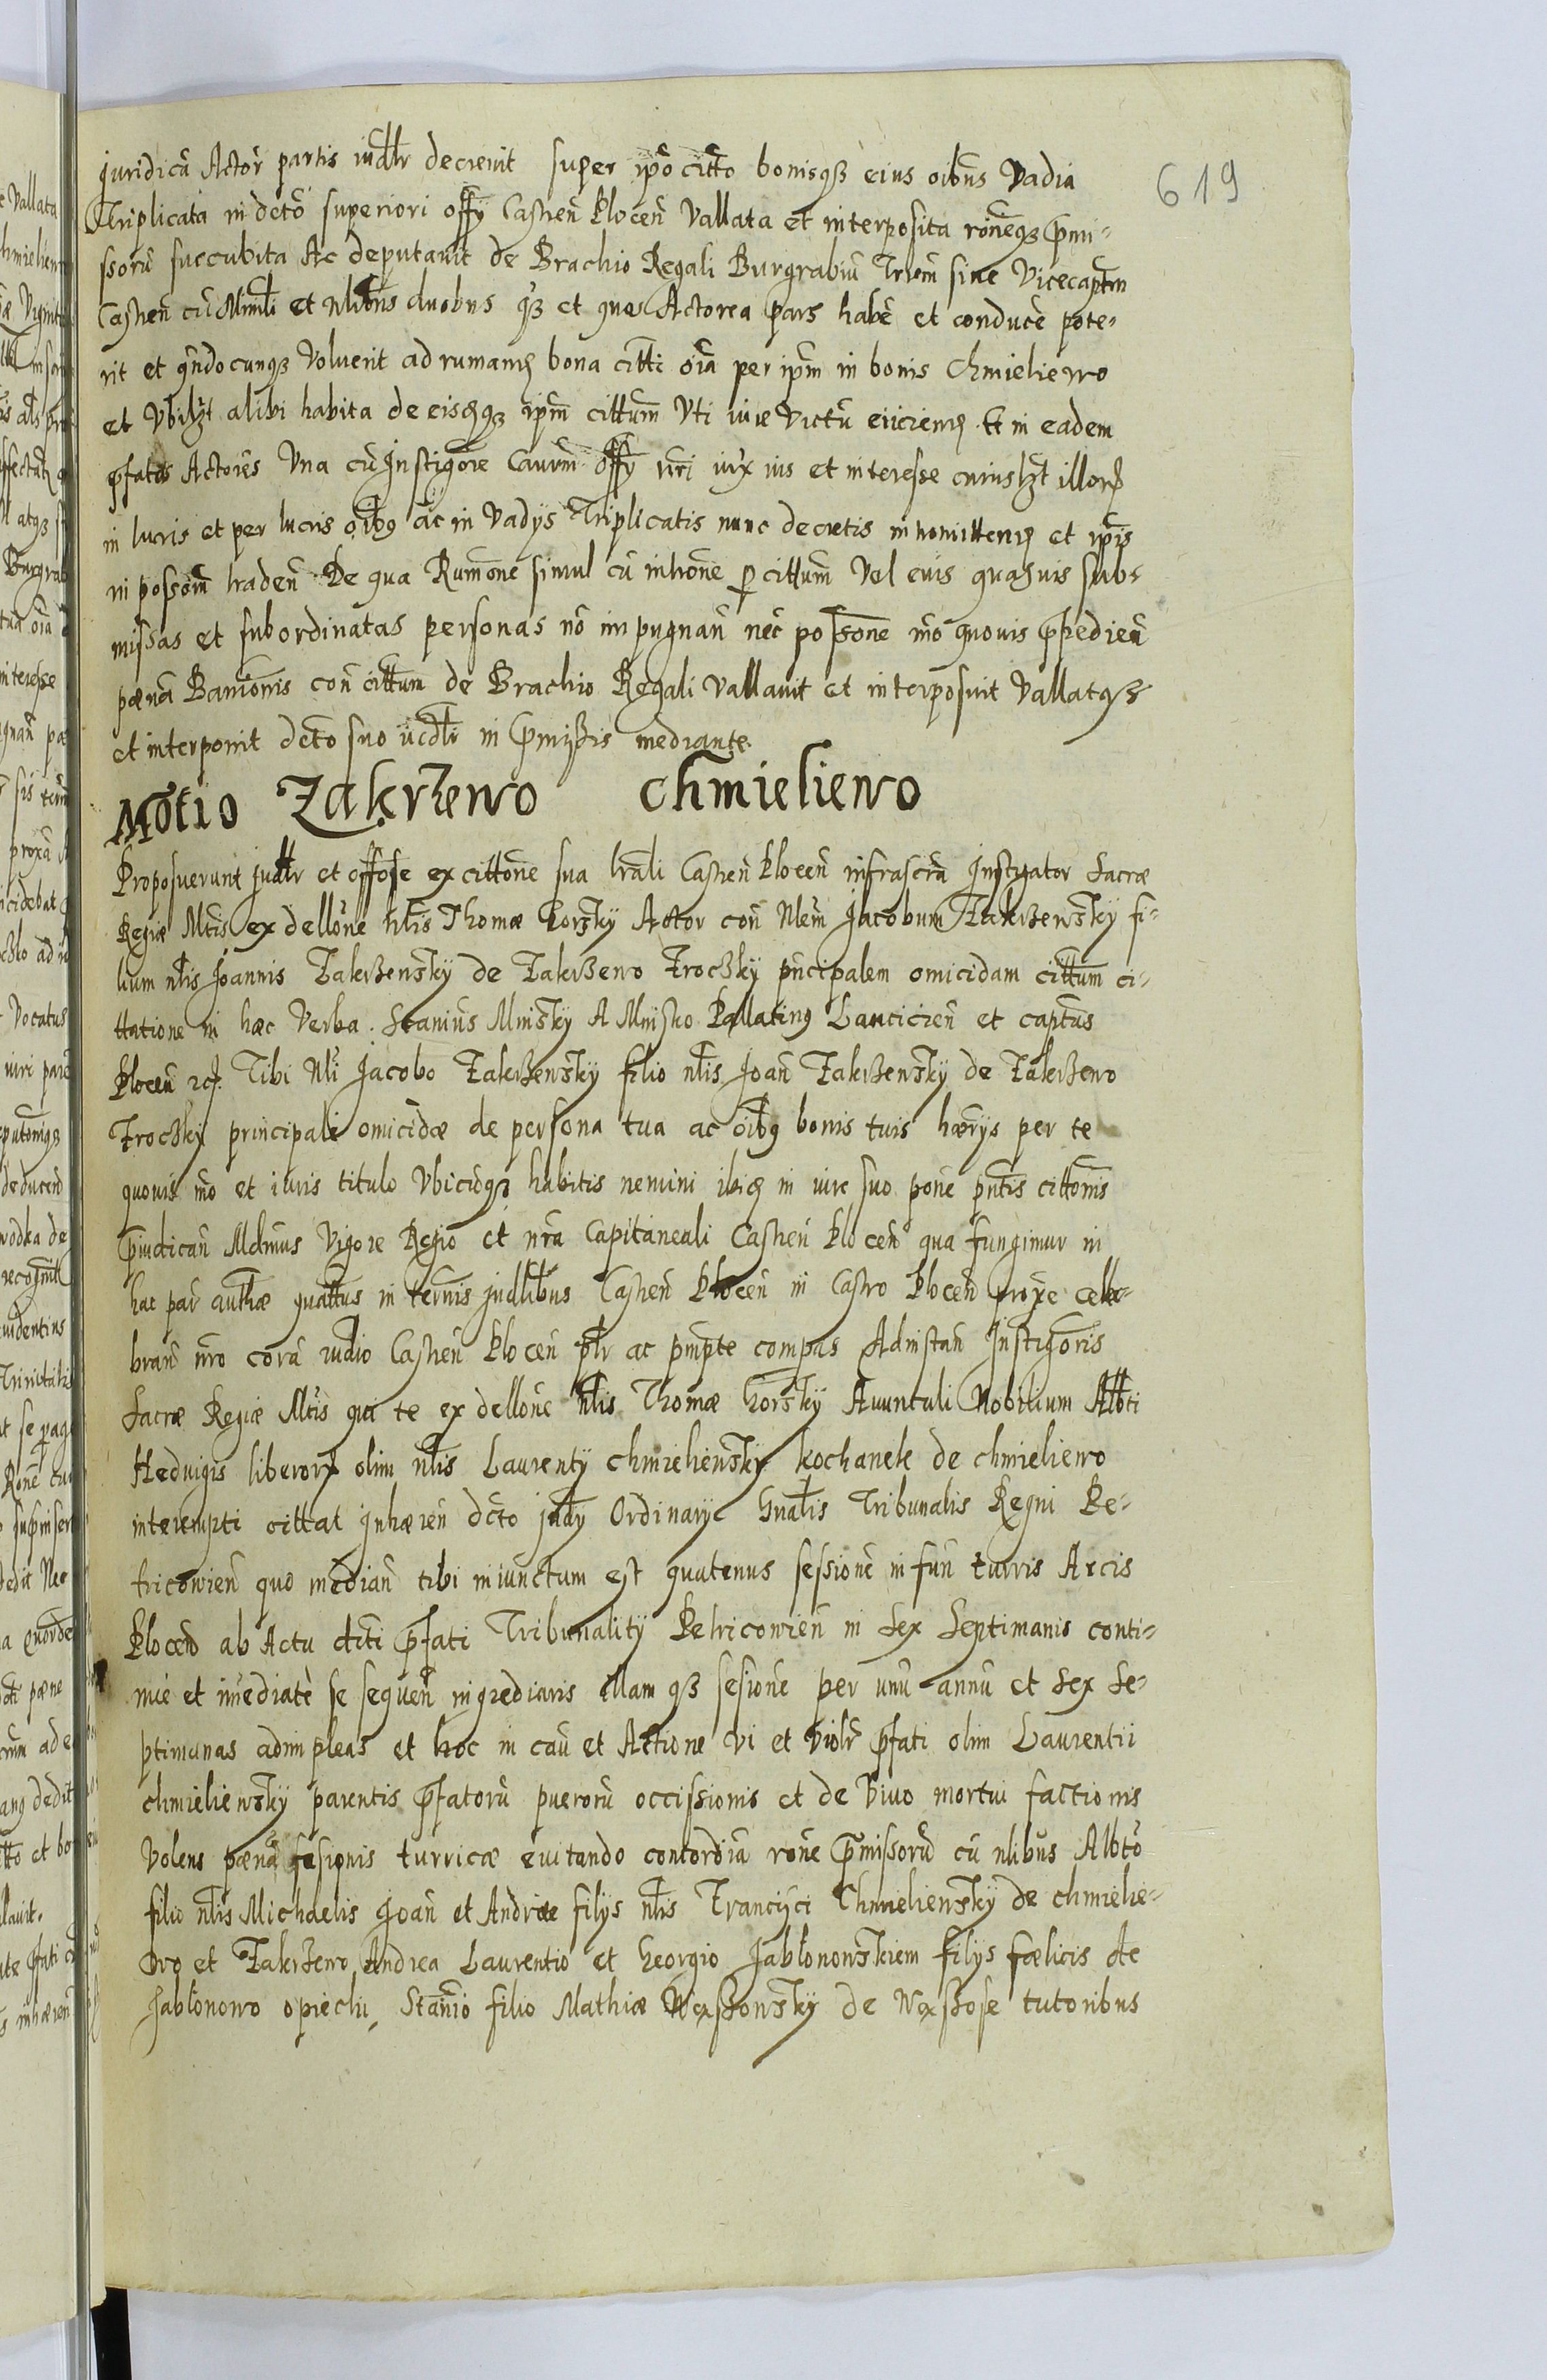 619
juridicã Actor̃ partis iudlr decrevit super ipõ citto bonisqȝ eius oibus Vadia
Triplicata in decto superiori offy Castren̄ Plocen̄ Vallata et interposita rõneqȝ p̄mi-
ssorũ succubita Ac deputavit de Brachio Regali Burgrabiũ sive Vicecaptm
Castren̄ cũ Minrli et Nlibus duobus qȝ et ques Actorea pars habe et conduce pote-
rit et qn̄docunqȝ Voluerit ad rumand bona citti oia per ipm in bonis Chmieliewo
et Vbilȝt alibi habita de eisdqȝ ipm cittum Vti iure Victũ eiiciend et in eadem
p̄fatos Actores Vna cũ Instigore Caurm offy nri iux ius et interesse cuiuslȝt illorũ
in lucris et per lucris oibq ac in Vadijs Triplicatis nunc decretis intromittend et ipis
in possoim traden̄ De qua Rumone simul cũ introne p cittum Vel eius quasuis sub-
missas et subordinatas personas nõ impugnan̄ nec possone mõ quouis p̄pedien̄
pænã Banionis con̄ cittum de Brachio Regali Vallavit et interposuit Vallatqȝ
et interponit decto suo iudli in p̄missis mediante
Motio Zakrzewo Chmieliewo
Proposuerunt judlr et offose ex cittone sua lrali Castren̄ Plocen̄ infrascra Instigator Sacræ
Regiæ Mtis ex dellone nlis Thomæ Gorsky Actor con̄ Nlem Jacobum Zakrzewsky fi-
lium nlis Joannis Zakrzewsky de Zakrzewo Troczky principalem omicidam cittum ci-
ttatione in hæc Verba. Stanius Minsky A Minsko Pallatinq Lancicien̄ et captus
Plocen̄ Tibi Nli Jacobo Zakrzewsky filio nlis Joan̄ Zakrzewsky de Zakrzewo
Troczky principali omicidæ de persona tua ac oibq bonis tuis hæryis per te
quouis mo et iuris titulo Vbicũqȝ habitis nemini ibid in iure suo pone pntis cittonis
p̄iudican̄ Mdmus Vigore Regio et nra Capitaneali Castren̄ Plocen̄ qua fungimur in
hac par authæ quattus in ternis judlibus Castren̄ Plocen̄ in Castro Plocen̄ proxe cele-
bran̄ nro corã iudio Castren̄ Plocen̄ plr ac pmpte compas Adinstan̄ Instigoris
Sacræ Regiæ Mtis qui te ex dellone nlis Thomæ Gorsky Avunculi Nobilium Albti
Hedvigis liberorũ olim nlis Laurenty Chmieliewsky Kochanek de Chmieliewo
interempti cittat Inhæren̄ dcto judy Ordinary Gnalis Tribunalis Regni Pe-
tricowien̄ quo median̄ tibi iniunctum est quatenus sessionẽ in fun̄ turris Arcis
Plocen̄ ab Actu dicti p̄fati Tribunality Petricowien̄ in Sex Septimanis conti-
nue et im̄ediatè se sequen̄ ingrediaris illam qȝ sesionẽ per unũ annũ et Sex Se-
ptimanas adimpleas et hoc in cau et Actione Vi et Violn p̄fati olim Laurentii
Chmieliewsky parentis p̄fatorũ puerorũ occissionis et de Vivo mortui factionis
Volens pænã sesionis turricæ evitando concordiã rõne p̄missorũ cũ nlibus Albto
filio nlis Michaelis Joan̄ et Andreæ filijs nlis Francisci Chmieliewsky de Chmielie-
wo et Zakrzewo, Andrea Laurentio et Georgio Jabłonowskiem filijs fælicis de
Jabłonowo opiechij, Stanio filio Mathiæ de tutoribus